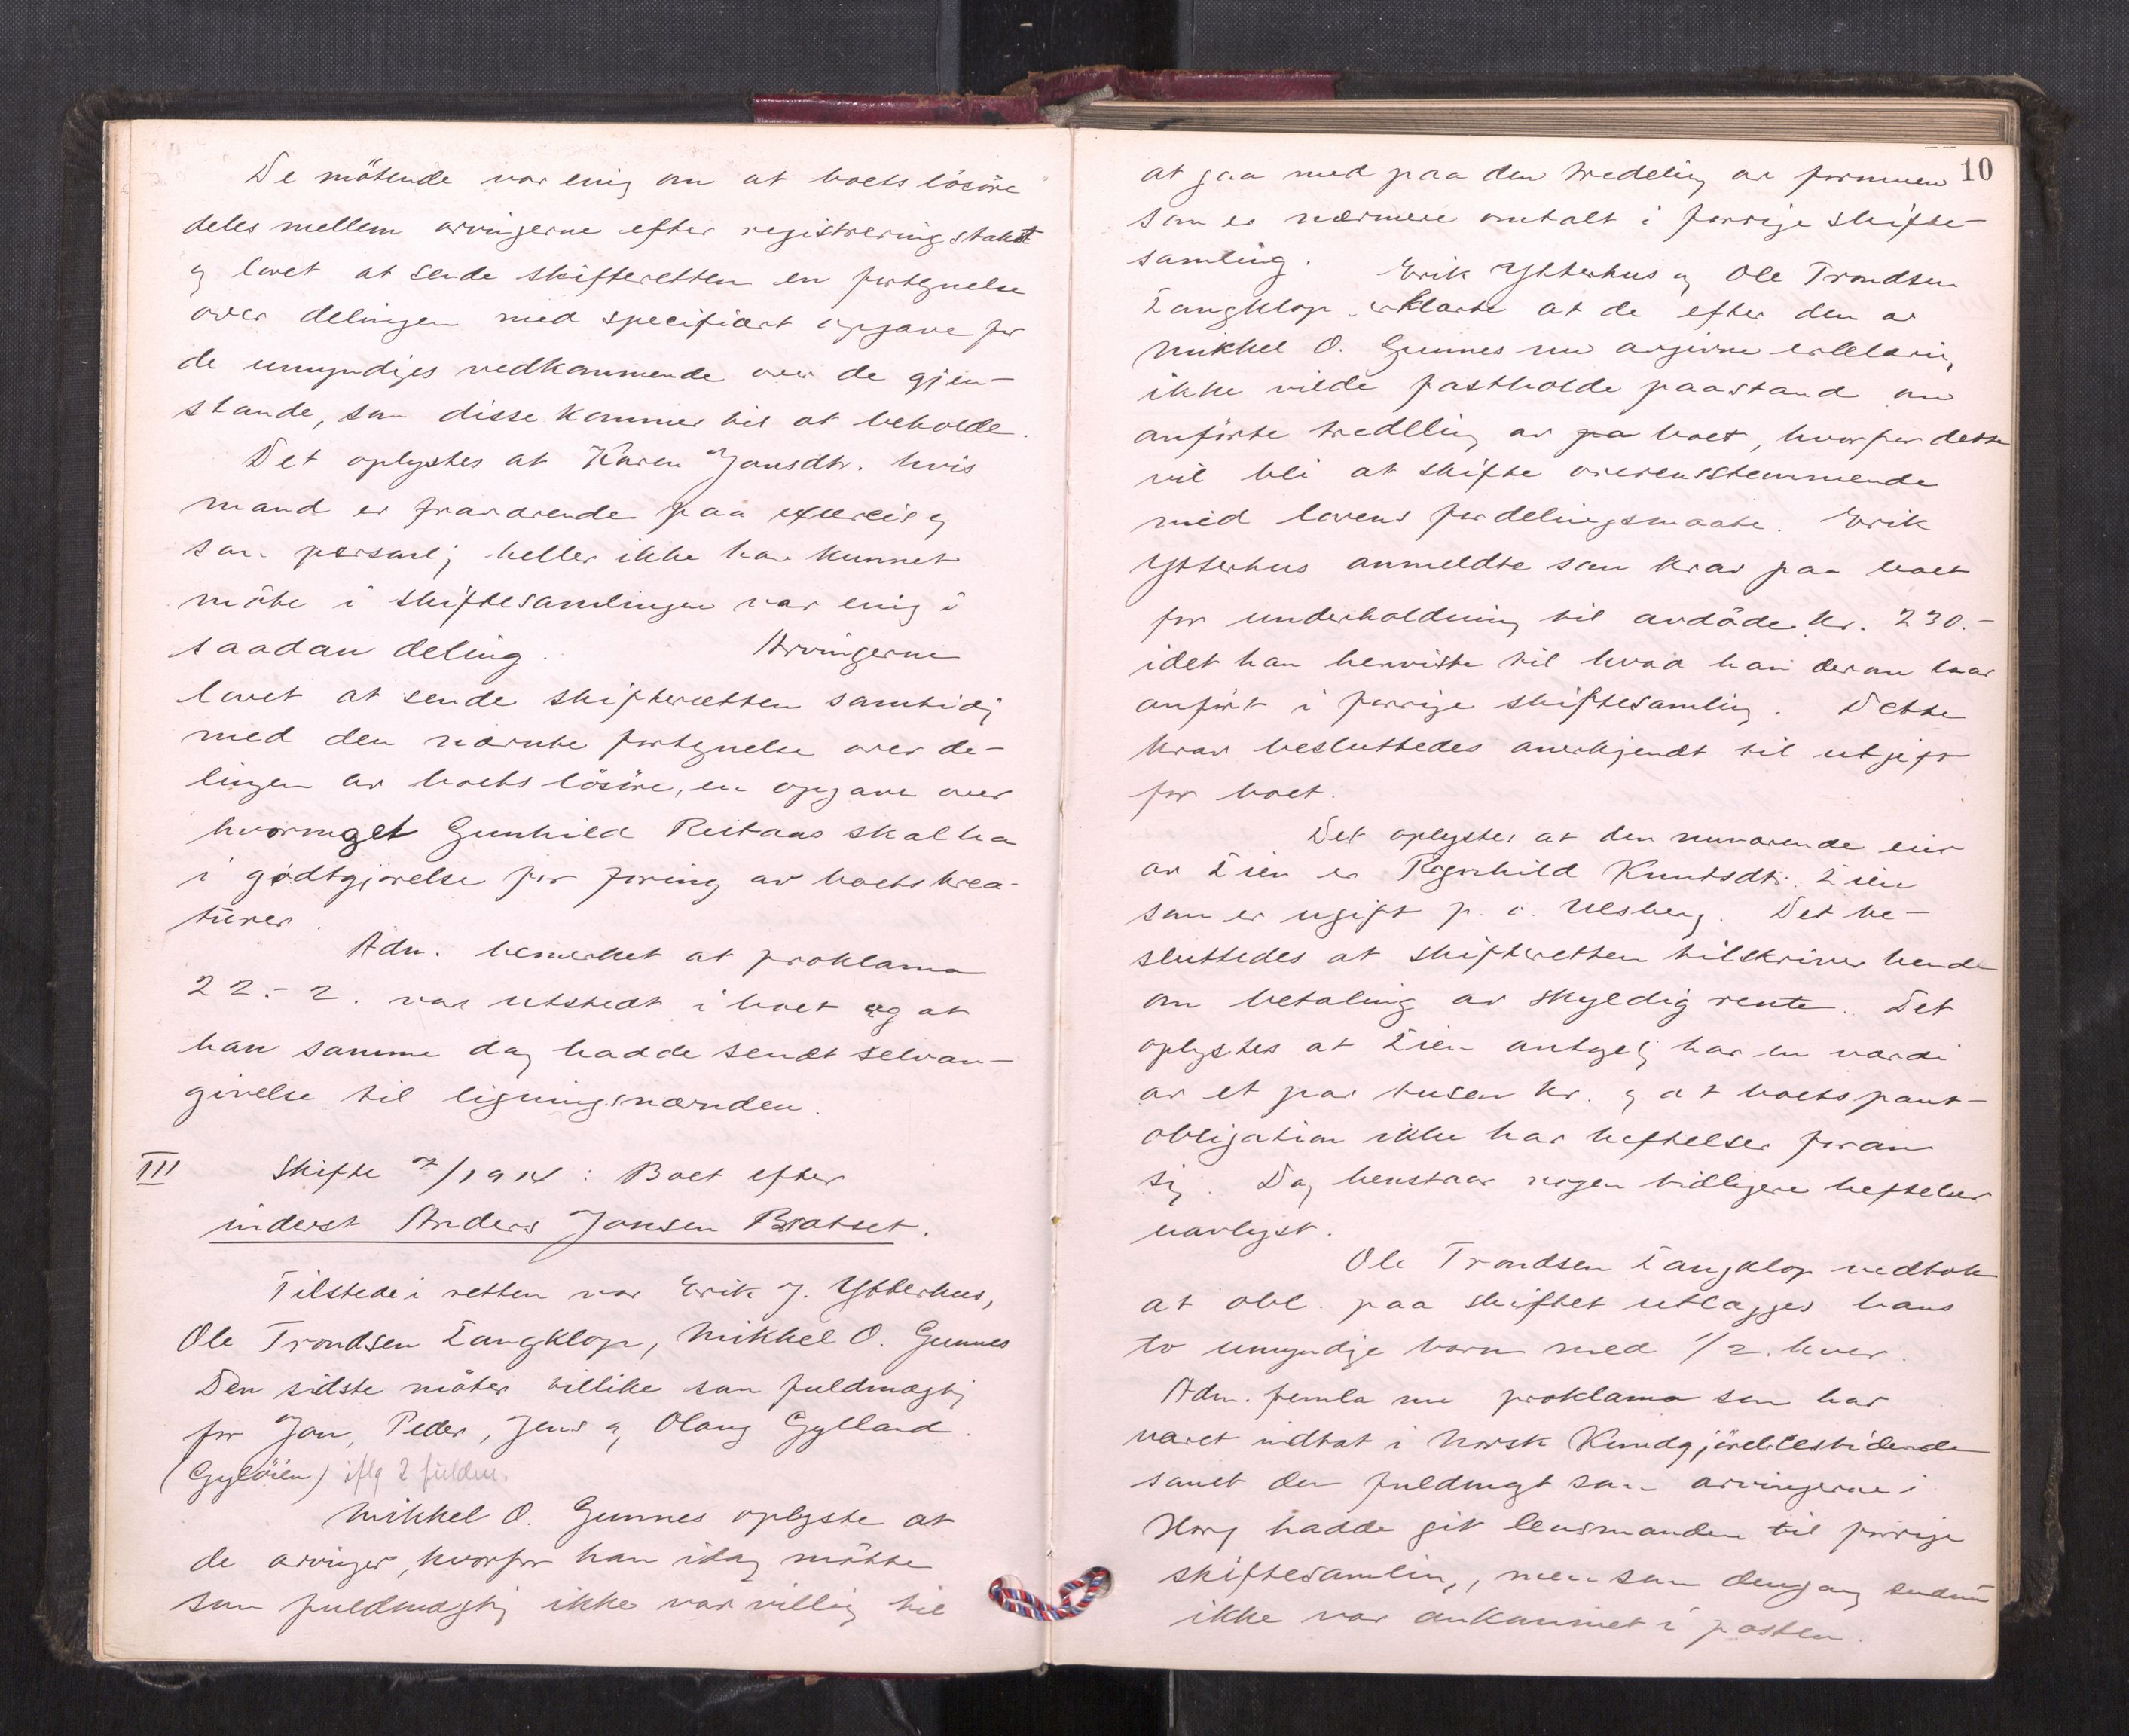 De mötende var enig om at boets lösöre
deles mellem arvingerne efter registreringstakst
og lovet at sende skifteretten en fortegnelse
over delingen med specifiert opgave for
de umyndiges vedkommende over de gjen-
stande, som disse kommer til at beholde.
Det oplystes at Karen Jonsdtr. hvis
mand er fraværende paa exercis og
som personlig heller ikke har kunnet
möte i skiftesamlingen var enig i
saadan deling. Arvingerne
lovet at sende skifteretten samtidig
med den nævnte fortegnelse over de-
lingen av boets lösöre, en opgave over
hvormeget Gunhild Reitaas skal ha
i godtgjørelse for foring av boets krea-
turer.
Adm. bemerket at proklama
22.-2. var utstedt i boet og at
han samme dag hadde sendt selvan-
givelse til ligningsnævnden.
III Skifte 7/1914: Boet efter
inderst Anders Jonsen Bratset.
Tilstede i retten var Erik J. Ytterhus,
Ole Trondsen Langklop, Mikkel O. Gunnes
Den sidste möter tillike som fuldmægtig
for Jon, Peder, Jens og Olaug Gylland.
(Gylöien) iflg 2 fuldm.
Mikkel O. Gunnes oplyste at
de arvinger, hvorfor han idag mötte
som fuldmægtig ikke var villig til
10
at gaa med paa den tredeling av formuen
som er nærmere omtalt i forrige skifte-
samling. Erik Ytterhus og Ole Trondsen
Langklop erklærte at de efter den av
Mikkel O. Gunnes nu avgivne erklæring
ikke vilde fastholde paastand om
anförte tredeling av boet, hvorfor dette
vil bli at skifte overensstemmende
med lovens fordelingsmaate. Erik
Ytterhus anmeldte som krav paa boet
for underholdning til avdöde kr. 230.-
idet han henviste til hvad han derom har
anfört i forrige skiftesamling. Dette
krav besluttedes anerkjendt til utgift
for boet.
Det oplystes at den nuværende eier
av Lien er Ragnhild Knutsdtr. Lien
som er ugift p. a. Ulsberg. Det be-
sluttedes at skifteretten tilskriver hende
om betaling av skyldig rente. Det
oplystes at Lien antagelig har en værdi
av et par tusen kr. og at boets pant-
obligation ikke har heftelser foran
sig. Dog henstaar nogen tidligere heftelser
uavlyst.
Ole Trondsen Langklop vedtok
at obl. paa skiftet utlægges hans
to umyndige barn med 1/2 hver.
Adm. femla nu proklama som har
været indtat i Norsk Kundgjörelsestidende
samt den fuldmagt som arvingerne i
Horg hadde git lensmanden til forrige
skiftesamling, men som dengang endnu
ikke var ankommet i posten.